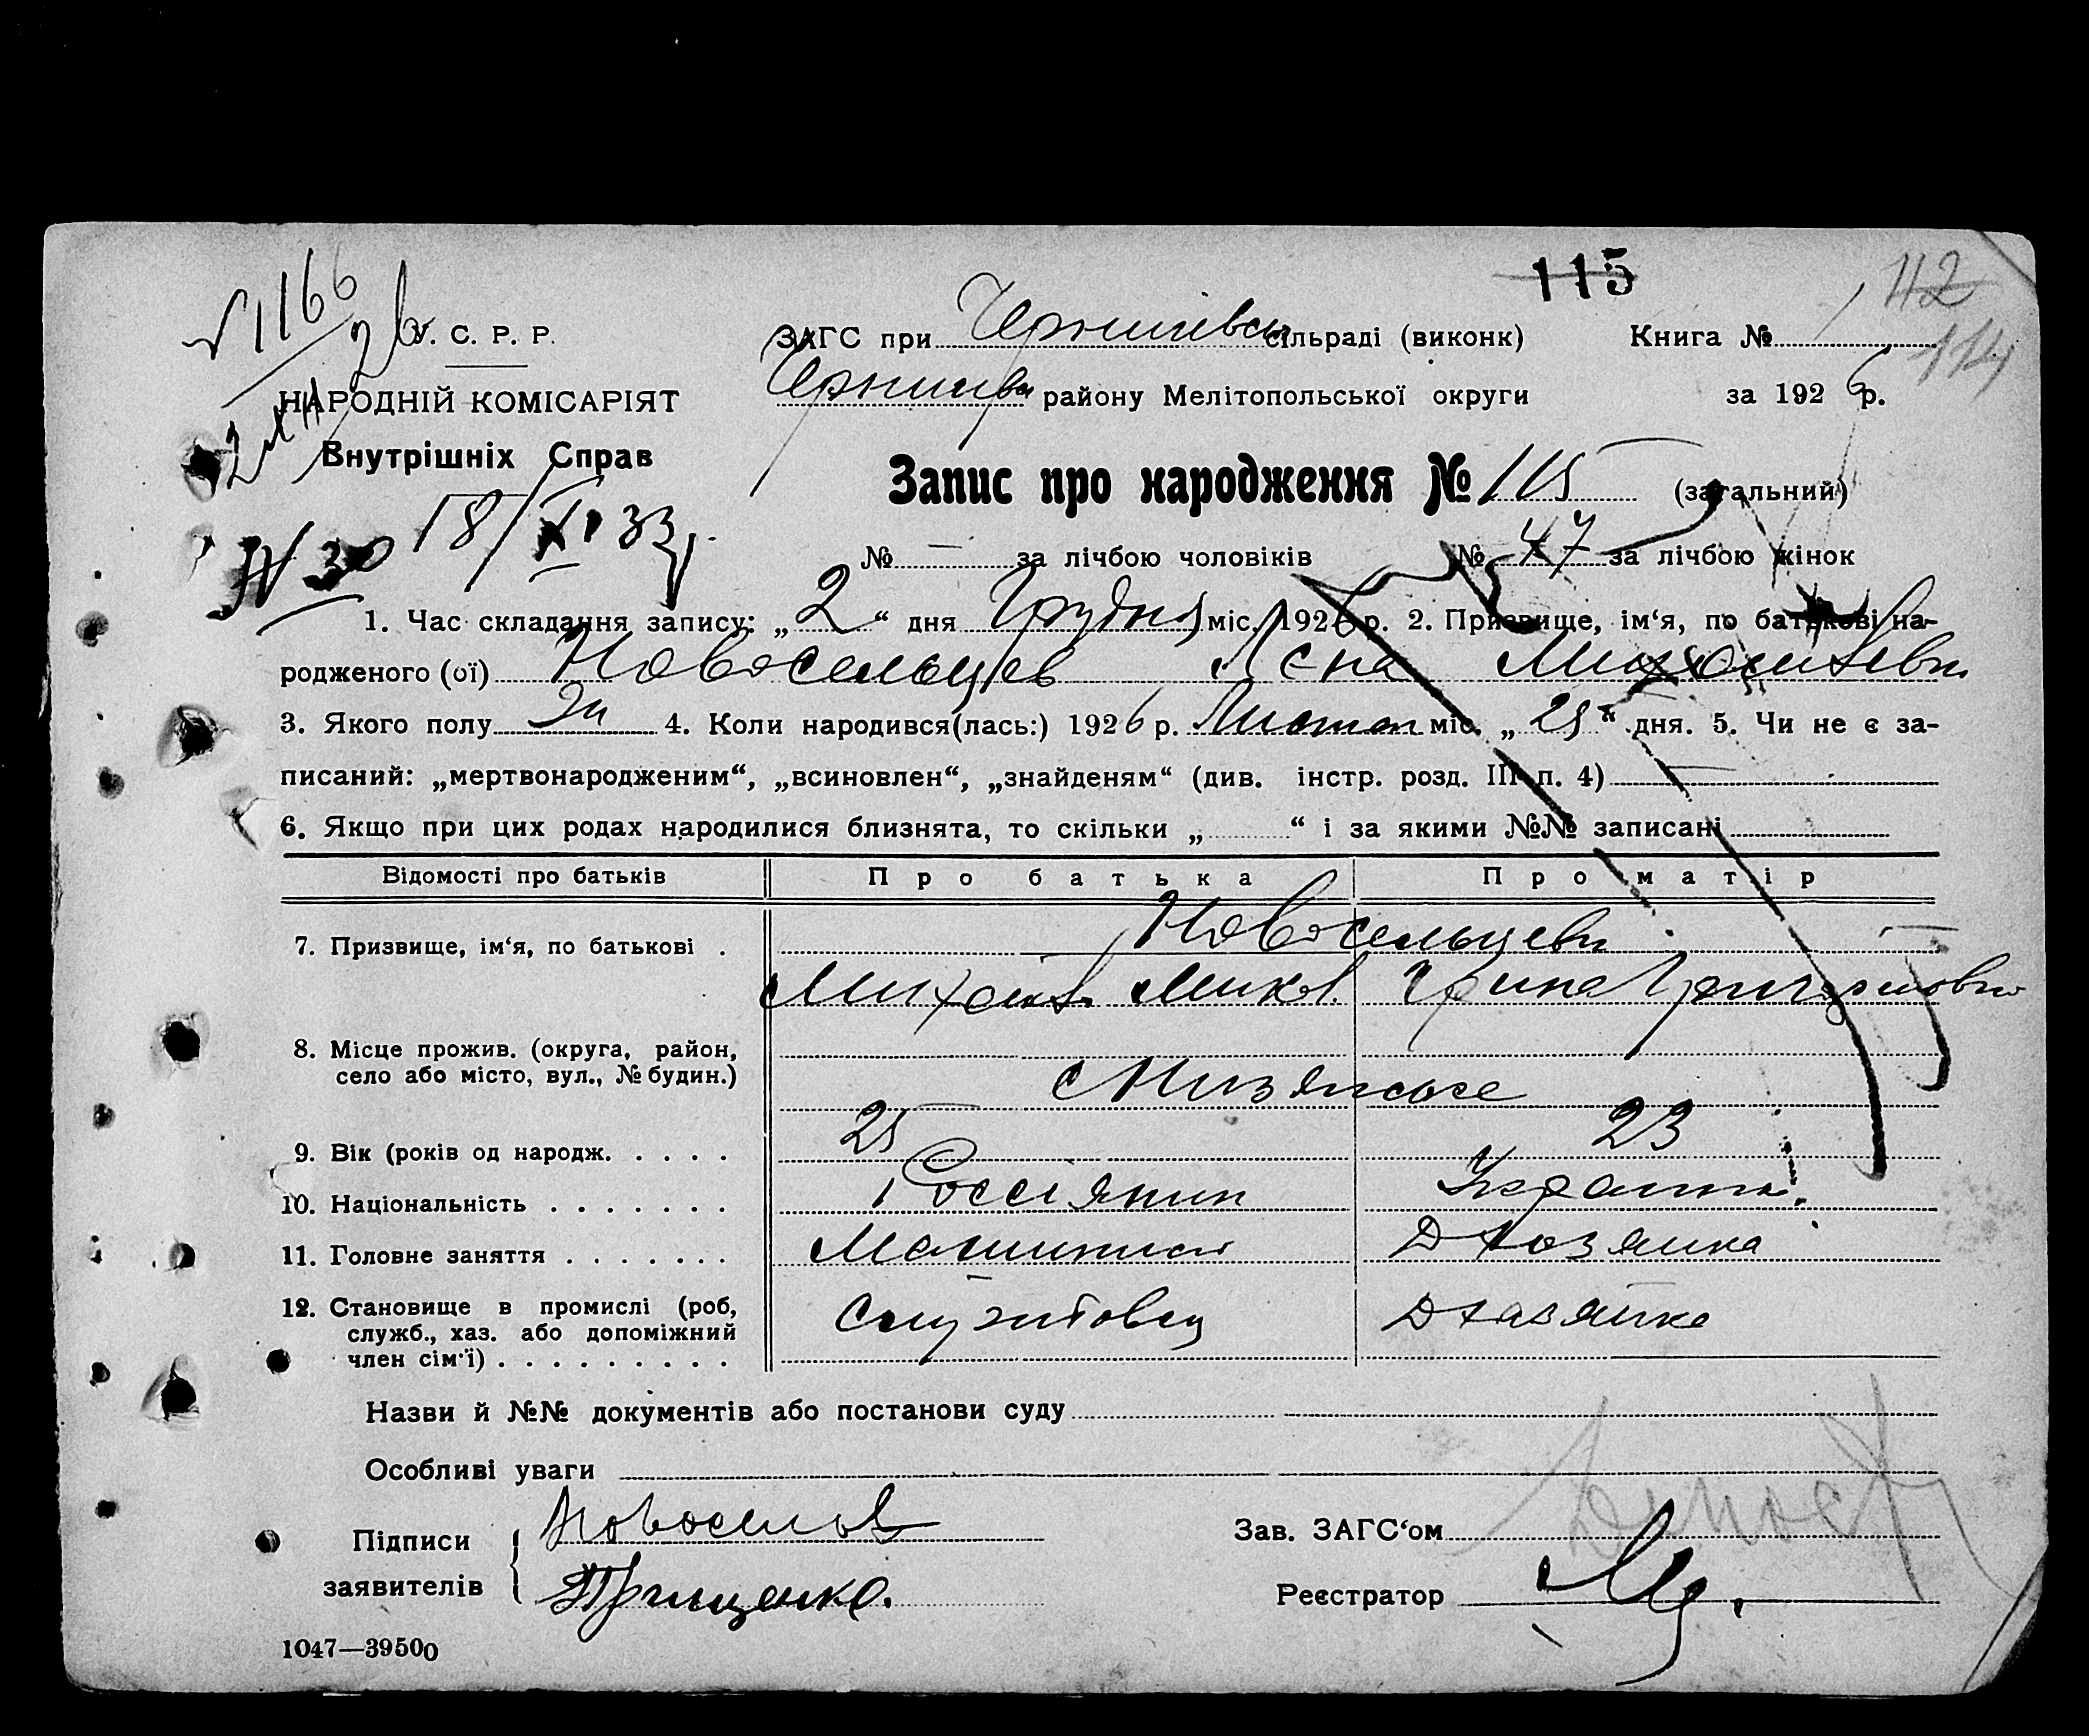 115
112
114
№ 1166
26
У. С. Р. Р.
ЗАГС при Чернигівськ сільраді (виконк) Книга № 1
НАРОДНІЙ КОМІСАРІЯТ
району Мелітопольської округи за 1926 р.
Внутрішніх Справ
Запис про народження № 115 (загальний)
№ 30 18/XI 33 р.
№ — за лічбою чоловіків № 47 за лічбою жінок
1. Час складання запису: „2“ дня Грудня міс. 1926 р. 2. Призвище, ім‘я, по батькові на-
родженого (ої) Новосельцев Лєна Михайлівн
3. Якого полу Жи 4. Коли народився(лась:) 1926 р. Листоп міс. „25“ дня. 5. Чи не є за-
писаний: „мертвонародженим“, „всиновлен“, „знайденям“ (див. інстр. розд. III п. 4)
6. Якщо при цих родах народилися близнята, то скільки „ “ і за якими №№ записані
Відомості про батьків Про батька Про матір
7. Призвище, ім‘я, по батькові . Новосельцеви
Михайл. Микол. Ірина Григоровна
8. Місце прожив. (округа, район,
село або місто, вул., № будин.)
9. Вік (років од народж. . . . . 25 23
10. Національність . . . . . . . Россіянин Українк.
11. Головне заняття . . . . . . . Машинист Д хозяйка
12. Становище в промислі (роб, службовец Д хазяйка
служб., хаз. або допоміжний
член сім‘ї) . . . . . . . . .
Назви й №№ документів або постанови суду
Особливі уваги
Підписи Новоселов Зав. ЗАГС‘ом
заявителів Грищенко. Реєстратор
1047—39500